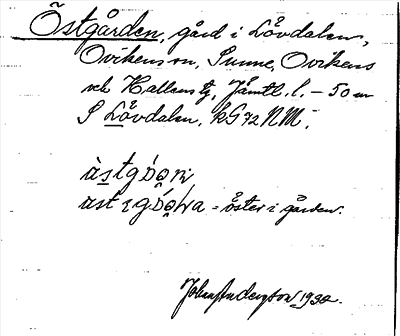 Östgården, gård i Lövdalen,
Ovikens sn, Sunne, Ovikens
och Hallens tg, Jämtl. l. – 50 m
S Lövdalen, kG 72 NM.
öster i gården.
Johan Andersson 1932.